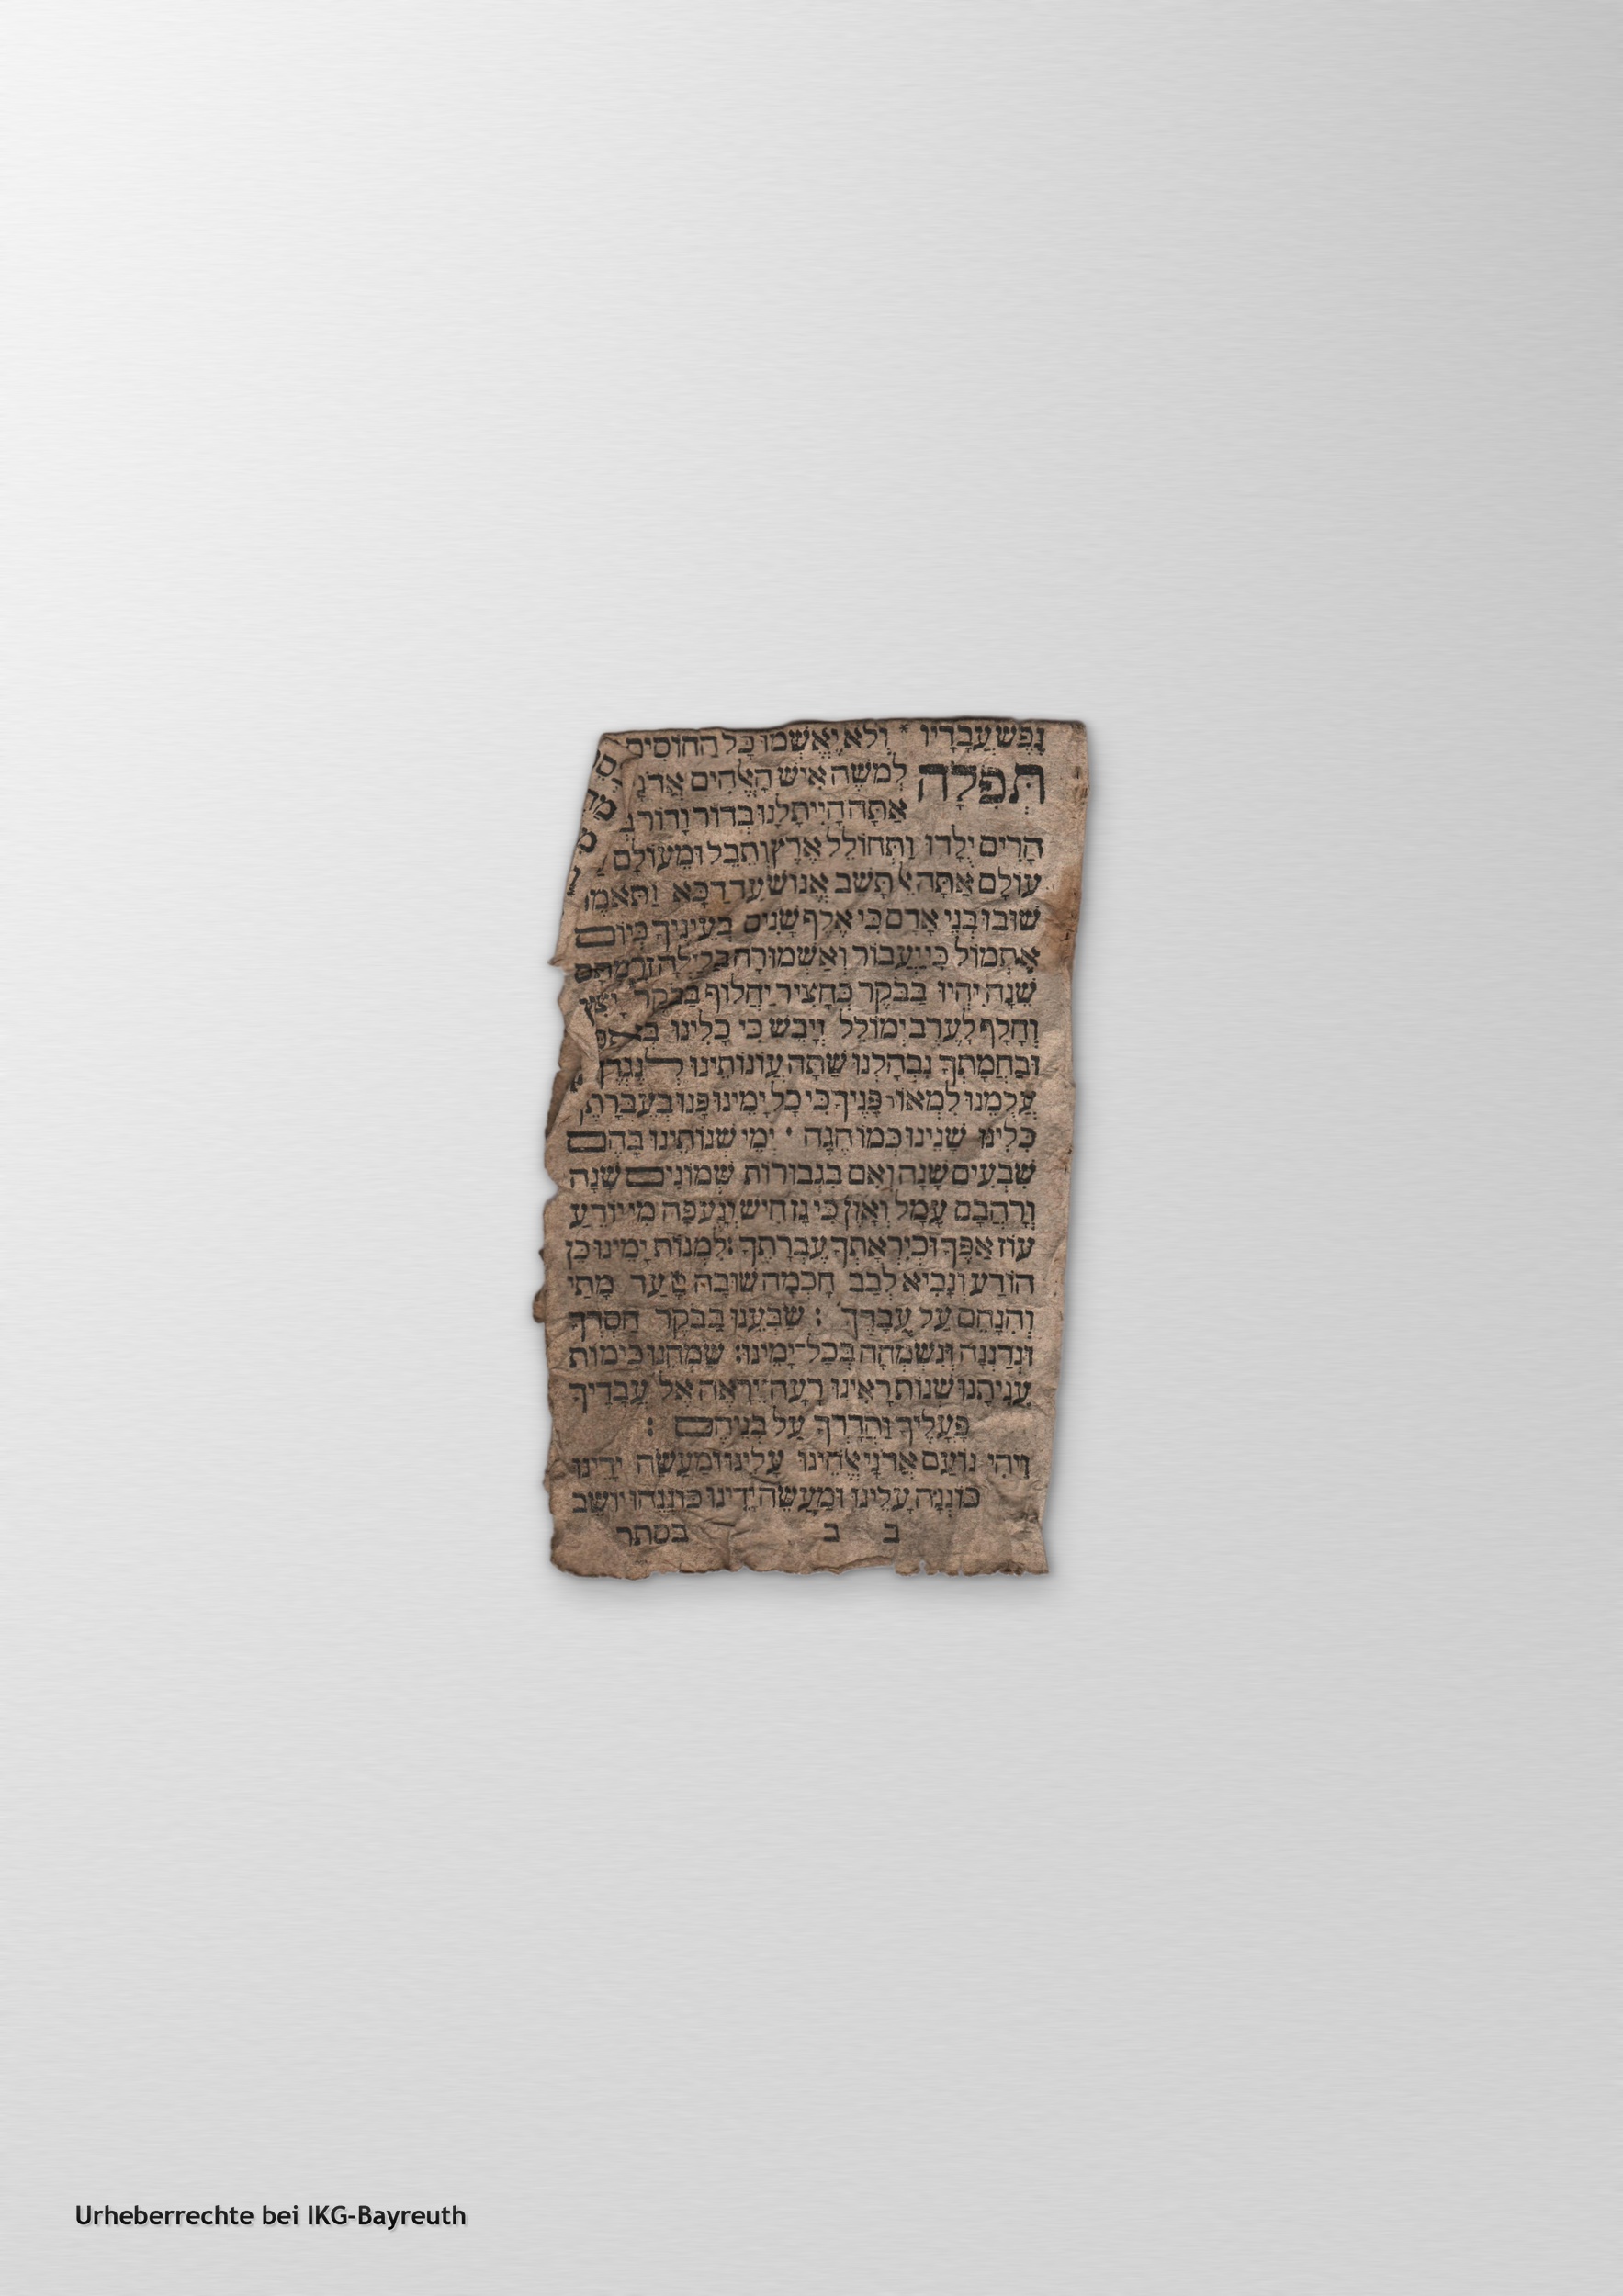 נֶפֶשׁ עֲבָדָיו * וְלֹא יֶאְשְׁמוּ כָּל הַחוֹסִים
תְּפִלָּה לְמשֶׁה אִישׁ הָאֱלֹהִים אֲדֹנָ
אַתָּה הָיִיתָ לָנוּ בְּדוֹר וָדוֹר
הָרִים יֻלָּדוּ וַתְּחוֹלֵל אֶרֶץ וְתֵבֵל וּמֵעוֹלָם
עוֹלָם אַתָּה אֵל תָּשֵׁב אֱנוֹשׁ עַד דַּכָּא וַתֹּאמֶ
שׁוּבוּ בְנֵי אָדָם כִּי אֶלֶף שָׁנִים בְּעֵינֶיךָ כְּיוֹם
אֶתְמוֹל כִּי יַעֲבוֹר וְאַשְׁמוּרָה
שֵׁנָה יִהְיוּ בַּבֹּקֶר כֶּחָצִיר יַחֲלוֹף בַּבֹּקֶר יָצִיץ
וְחָלָף לָעֶרֶב יְמוֹלֵל וְיָבֵשׁ כִּי כָלִינוּ
וּבַחֲמָתְךָ נִבְהָלְנוּ שַׁתָּה עֲוֹנוֹתֵינוּ לְנֶגְדְּ
עֲלֻמֵנוּ לִמְאוֹר פָּנֶיךָ כִּי כָל יָמֵינוּ פָּנוּ בְעֶבְרָתֶ
כִּלִּינוּ שָׁנֵינוּ כְּמוֹ הֶגֶה · יְמֵי שְׁנוֹתֵינוּ בָהֶם
שִׁבְעִים שָׁנָה וְאִם בִּגְבוּרוֹת שְׁמוֹנִים שָׁנָה
וְרָהְבָּם עָמָל וָאָוֶן כִּי גָז חִישׁ וַנָּעֻפָה מִי יוֹדֵעַ
עוֹז אַפֶּךָ וּכְיִרְאָתְךָ עֶבְרָתֶךָ : לִמְנוֹת יָמֵינוּ כֵּן
הוֹדַע וְנָבִיא לְבַב חָכְמָה שׁוּבָה עַד מָתַי
וְהִנָּחֵם עַל עֲבָדֶיךָ : שַׂבְּעֵנוּ בַבֹּקֶר חַסְדֶּךָ
וּנְרַנְּנָה וְנִשְׂמְחָה בְּכָל־יָמֵינוּ : שַׂמְּחֵנוּ כִּימוֹת
עִנִּיתָנוּ שְׁנוֹת רָאִינוּ רָעָה יֵרָאֶה אֶל עֲבָדֶיךָ
פָּעֳלֶיךָ וַהֲדָרְךָ עַל בְּנֵיהֶם :
וִיהִי נוֹעַם אֲדֹנָי אֱלֹהֵינוּ עָלֵינוּ וּמַעֲשֵׂה יָדֵינוּ
כּוֹנְנָה עָלֵינוּ וּמַעֲשֵׂה יָדֵינוּ כּוֹנְנֵהוּ יוֹשֵׁב
ב ב בסתר
Urheberrechte bei IKG-Bayreuth